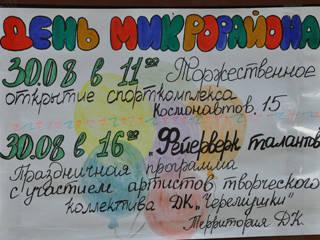 ДЕНЬ МИКРОРАЙОНА
30.08 в 11⁰⁰ Торжественное
открытие спорткомплекса
Космонавтов, 15
30.08 в 16⁰⁰ „Фейерверк талантов
Праздничная программа
с участием артистов творческого
коллектива ДК „Черемушки"
Территория ДК.